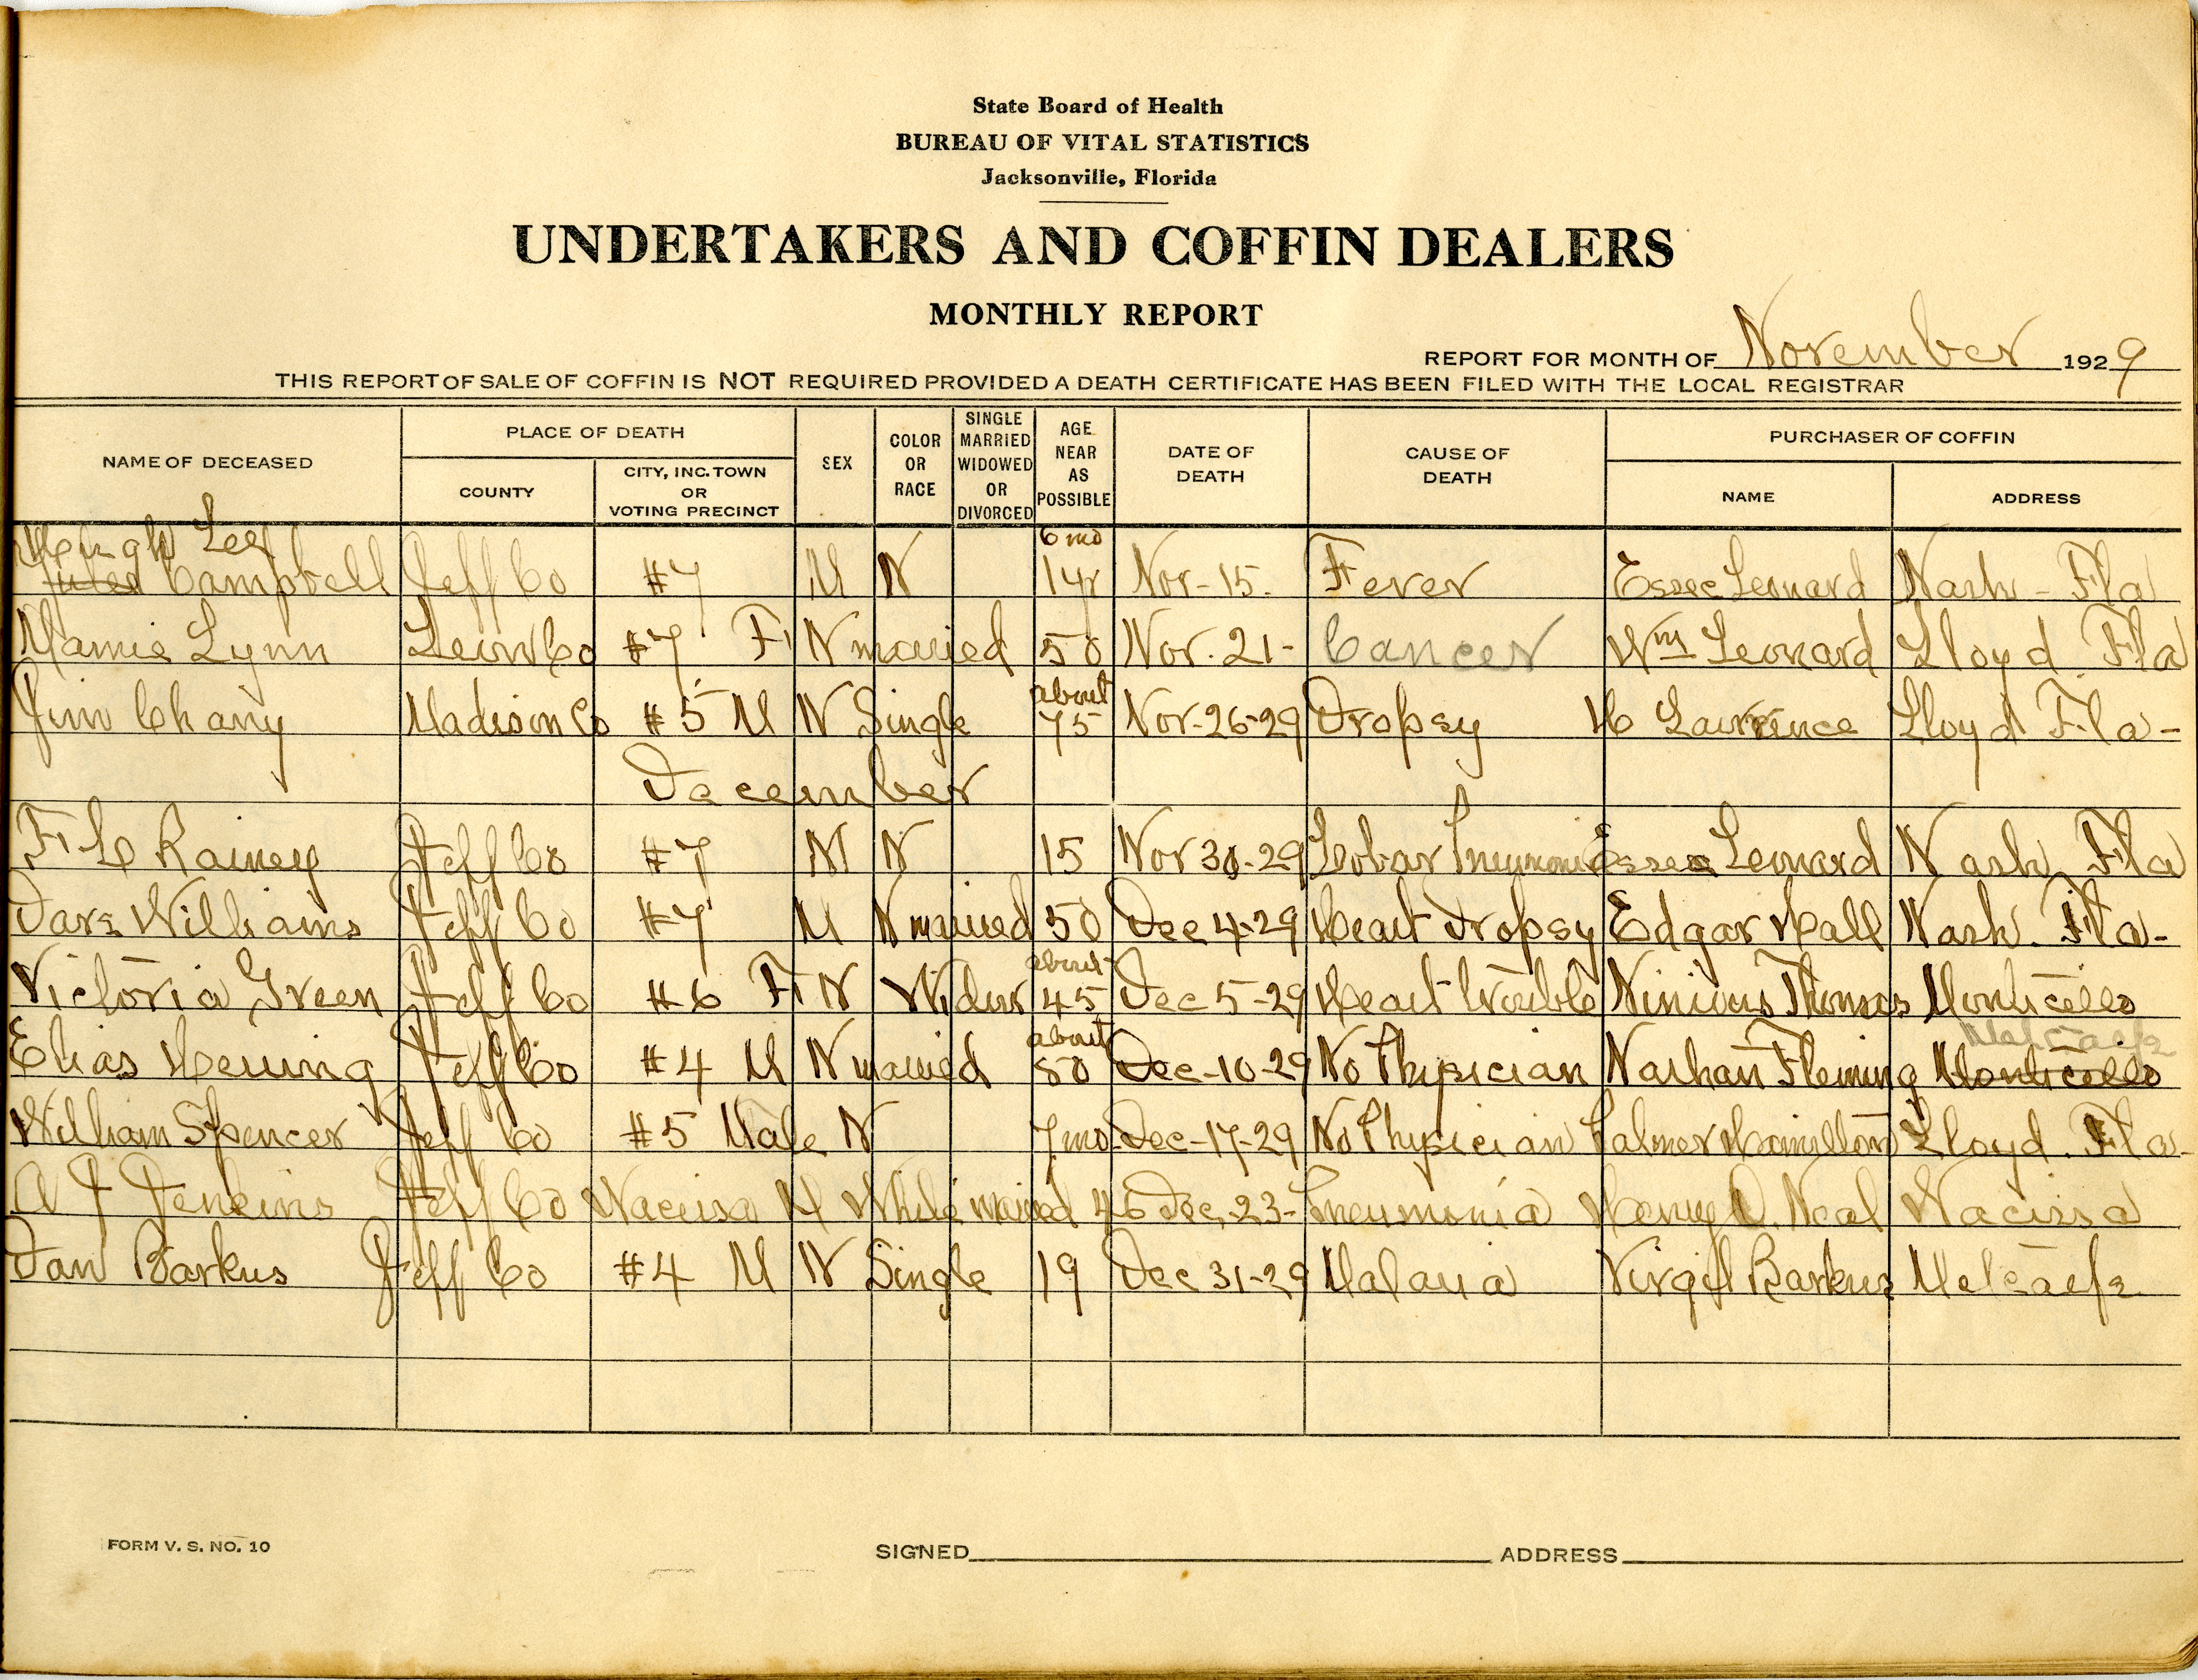 State Board of Health
BUREAU OF VITAL STATISTICS
Jacksonville, Florida
UNDERTAKERS AND COFFIN DEALERS
MONTHLY REPORT
REPORT FOR MONTH OF November 1929
THIS REPORT OF SALE OF COFFIN IS NOT REQUIRED PROVIDED A DEATH CERTIFICATE HAS BEEN FILED WITH THE LOCAL REGISTRAR
NAME OF DECEASED PLACE OF DEATH COUNTY CITY, INC. TOWN OR VOTING PRECINCT SEX COLOR OR RACE SINGLE MARRIED WIDOWED OR DIVORCED AGE NEAR AS POSSIBLE DATE OF DEATH CAUSE OF DEATH PURCHASER OF COFFIN NAME ADDRESS
Hugh Lee 6 mo
Campbell Jeff Co #7 M N 1 yr Nov-15. Fever Essec Leonard Nash - Fla
Mamie Lynn Leon Co #7 F N married 50 Nov. 21- Cancer Wm Leonard Lloyd Fla
about
Jim Chany Madison Co #5 M N Single 75 Nov-26-29 Dropsy H Lawrence Lloyd Fla-
December
F C Rainey Jeff Co #7 M N 15 Nov 30-29 Lobar Essec Leonard Nash Fla
Williams Jeff Co #7 M N married 50 Dec 4-29 Heart Dropsy Edgar Hall Nash. Fla-
about
Victoria Green Jeff Co #6 F N 45 Dec 5-29 Heart trouble Thomas Monticello
about Metcalfe
Elias Herring Jeff Co #4 M N married 50 Dec-10-29 No Physician Nathan Fleming Monticello
William Spencer Jeff Co #5 Male N 7 mo Dec-17-29 No Physician Palmer Hamilton Lloyd. Fla-
A J Jenkins Jeff Co Wacissa M White married 46 Dec, 23- Pneumonia Henry O. Neal Wacissa
Dan Barkus Jeff Co #4 M N Single 19 Dec 31-29 Malaria Virgil Barkus Metcalfe
FORM V. S. NO. 10
SIGNED ADDRESS